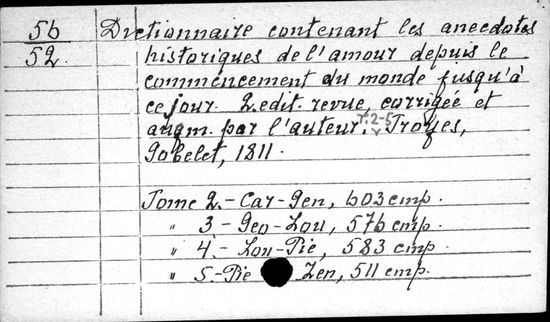 56 Dictionnaire contenant les anecdotes
52. historiques de l'amour depuis le
commencement du monde jusqu'à
ce jour. 2. edit. revue, corrigée et
augm. par l'auteur. T. 2-5 Troyes,
Gobelet, 1811.
Tome 2.- Car-Gen, 603 cmp.
" 3 - Geo-Lou, 576 cmp.
" 4.- Lou-Pie, 583 cmp.
" 5.-Pie Zen, 511 cmp.